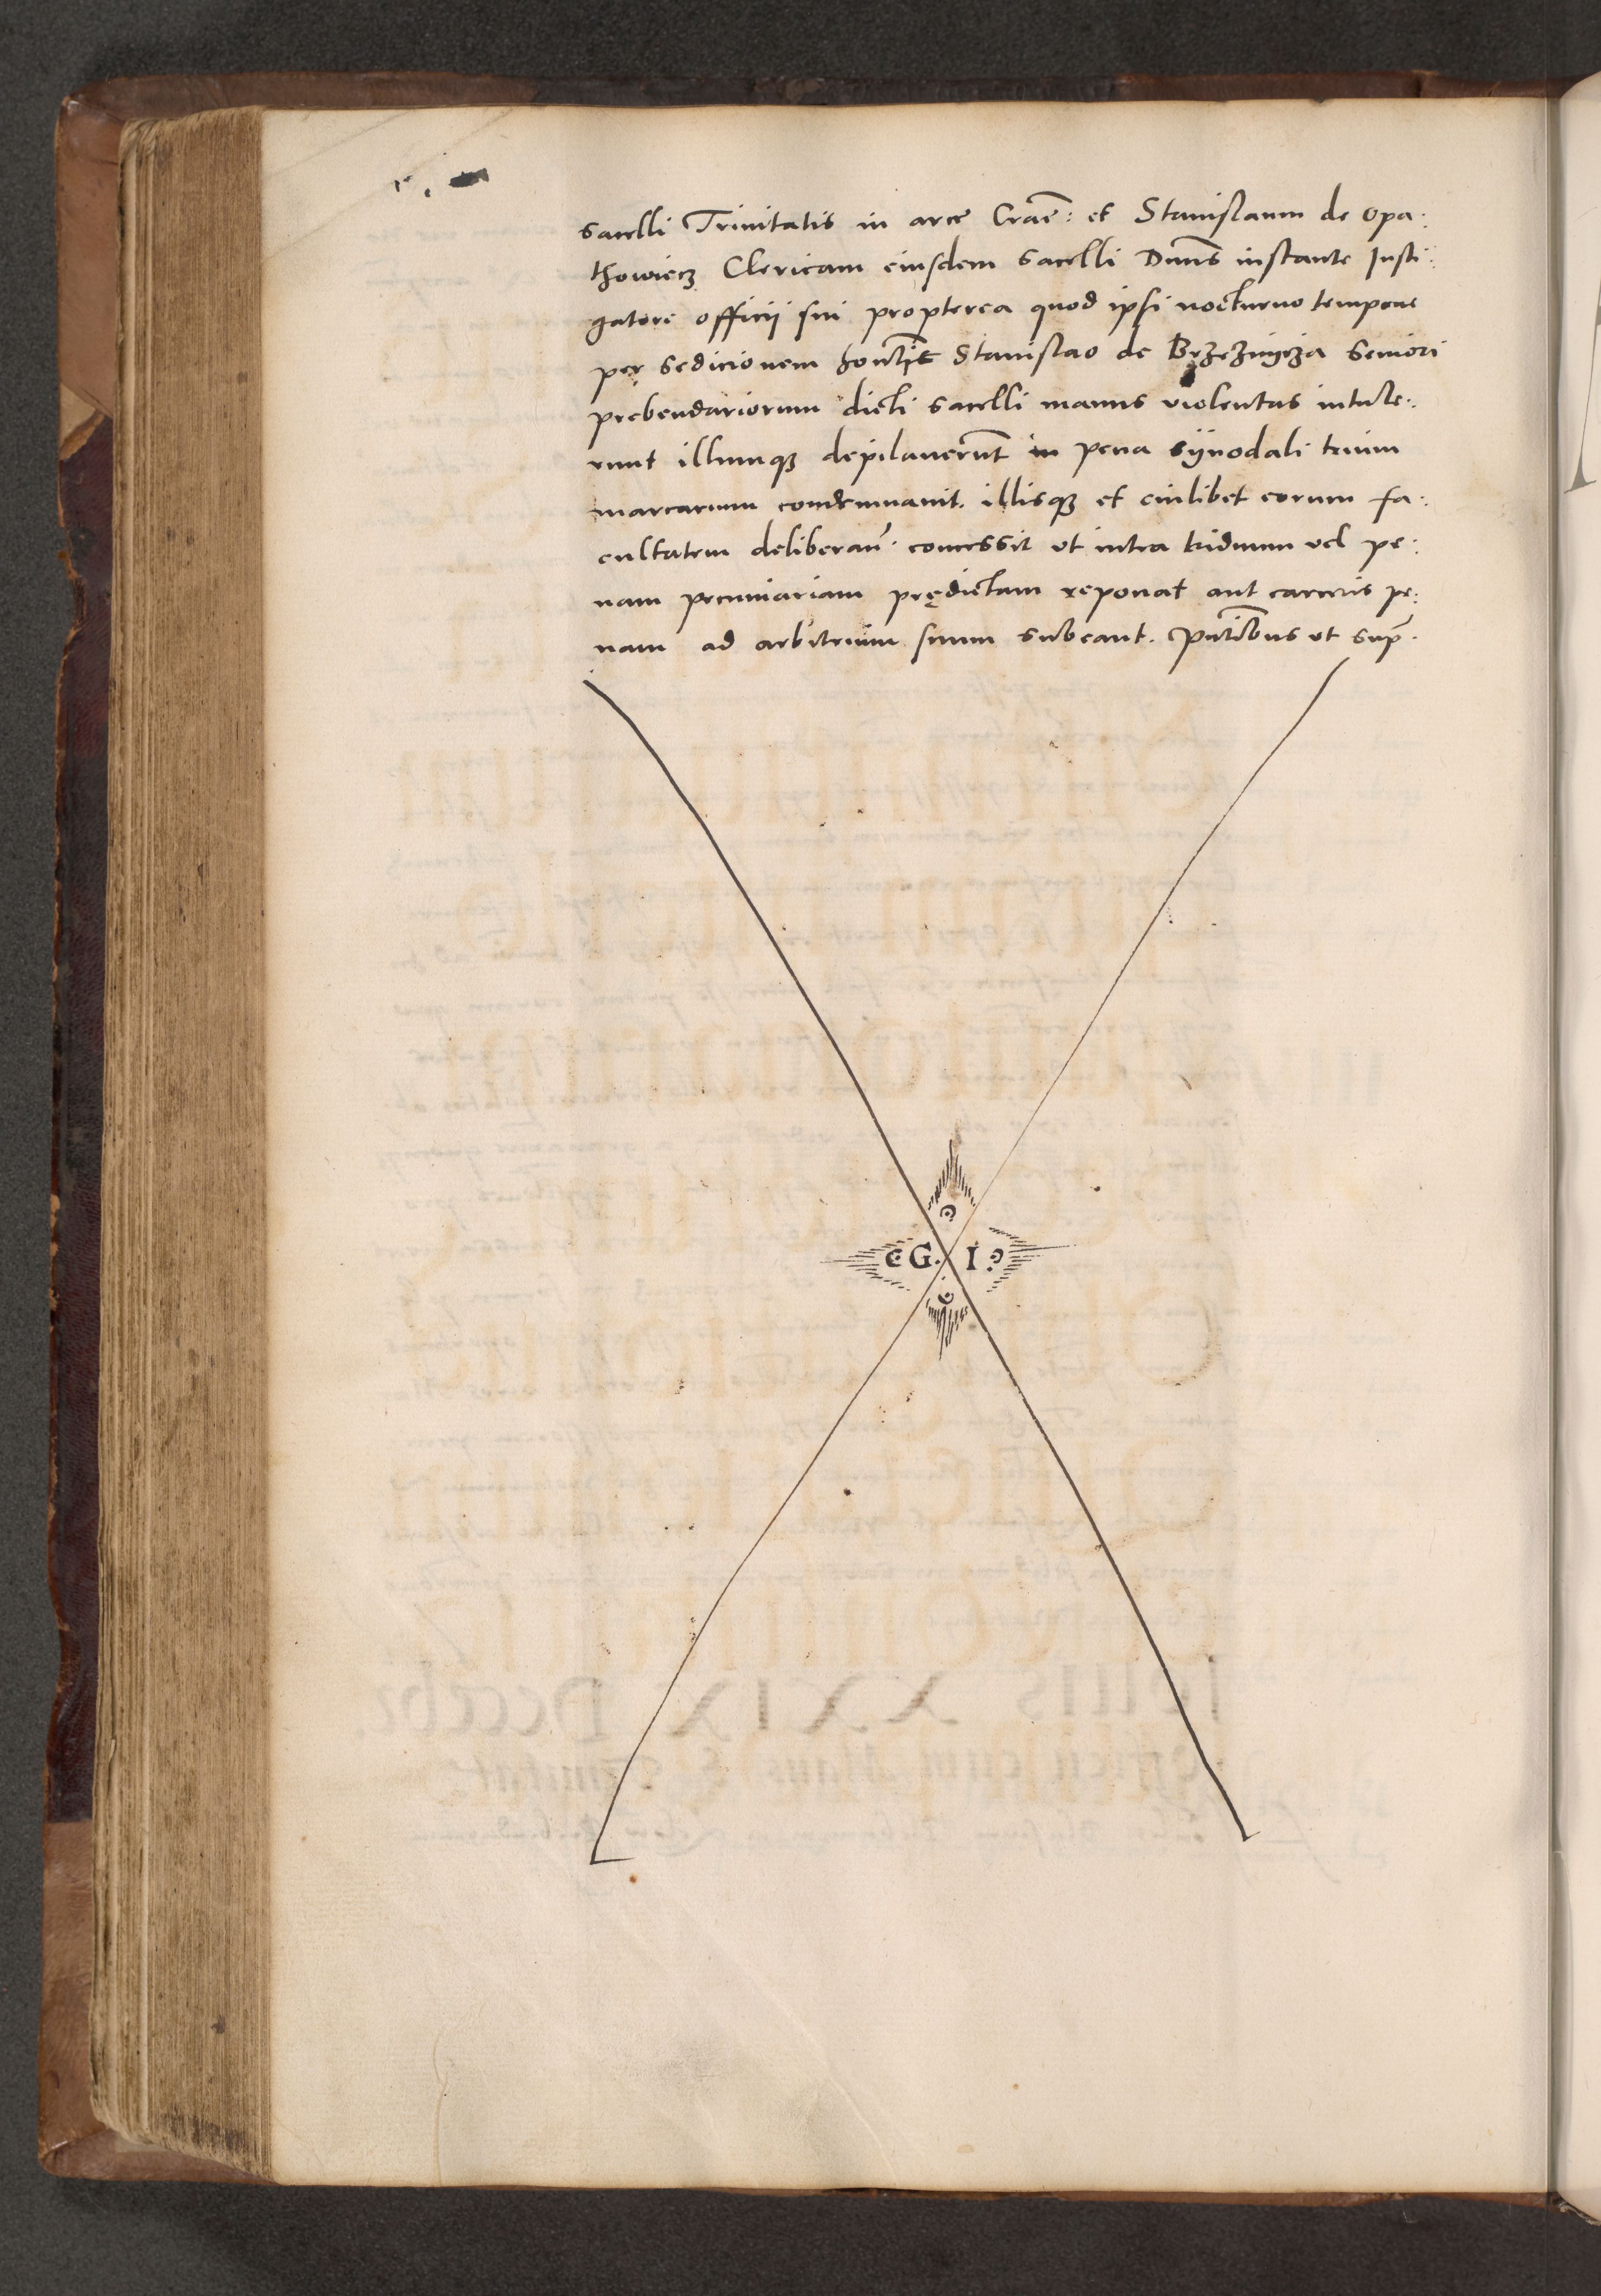 sacelli Trinitatis in arce Crac̄: et Stanislaum de Opa:
thowiecz Clericum eiusdem sacelli Dnūs instante Insti:
gatore officii sui propterea quod ipsi nocturno tempore
per sedicionem Stanislao de Brzeznycza seniori
prebendariorum dicti sacelli manus violentas intule:
runt illumqꝫ depilauerūnt in pena synodali trium
marcarum condemnauit. illisqꝫ et cuilibet eorum fa:
cultatem deliberan̄. concessit ut intra triduum vel pe:
nam pecuniariam prędictam reponat aut carceris pe:
nam ad arbitrium suum subeant. Pn̄tibus ut sup̄.
G. I